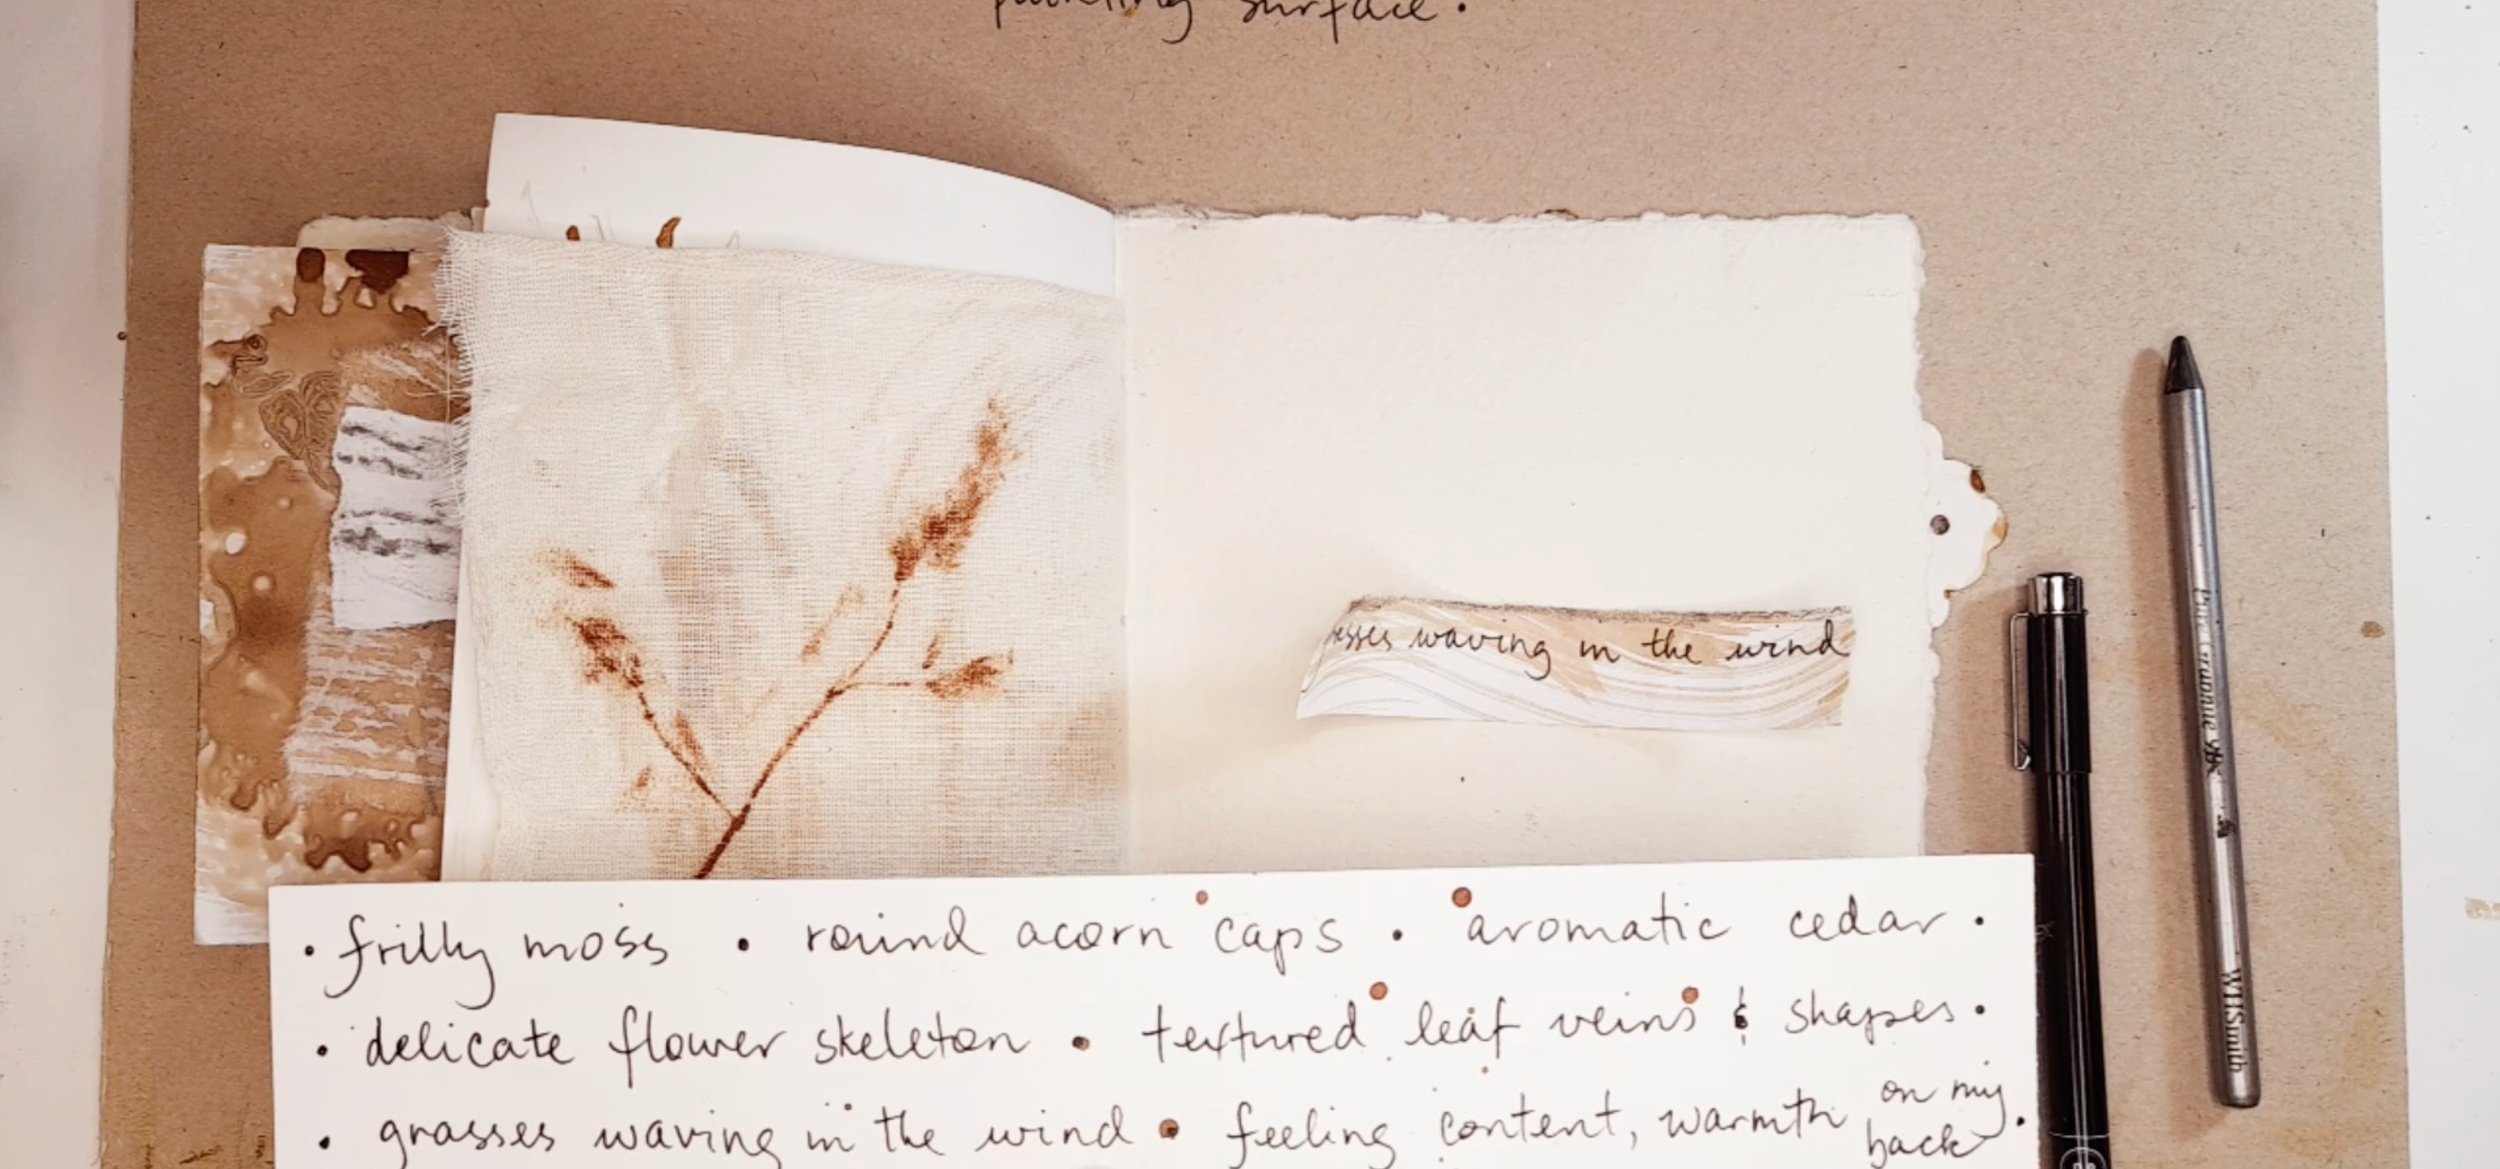 painting surface.
esses waving in the wind
• frilly moss • round acorn caps • aromatic cedar •
• delicate flower skeleton • textured leaf veins & shapes •
• grasses waving in the wind • feeling content, warmth on my back.
Pure Graphite
WHSmith